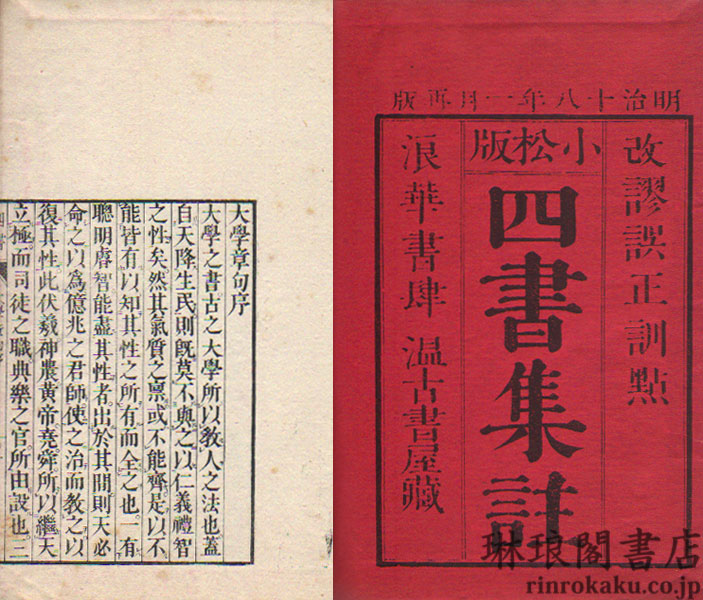 明治十八年一月再版
改謬誤正訓點
小松版
四書集註
浪華書肆 温古書屋藏
琳琅閣書店
rinrokaku.co.jp
大學章句序
大學之書古之大學所以教人之法也蓋
自天降生民則既莫不與之以仁義禮智
之性矣然其氣質之稟或不能齊是以不
能皆有以知其性之所有而全之也一有
聰明睿智能盡其性者出於其間則天必
命之以爲億兆之君師使之治而教之以
復其性此伏羲神農黃帝堯舜所以繼天
立極而司徒之職典樂之官所由設也三